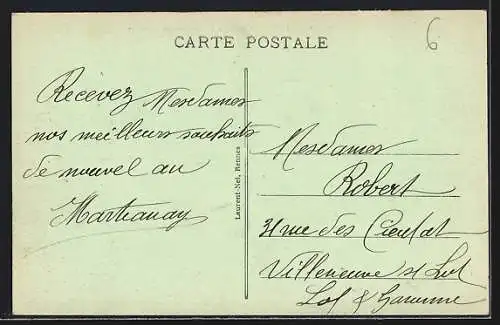 6
CARTE POSTALE
Recevez Mesdames
nos meilleurs souhaits
de nouvel an
Laurent-Nel, Rennes
Mesdames
Robert
31 rue des
Villeneuve s/ Lot
Lot & Garonne